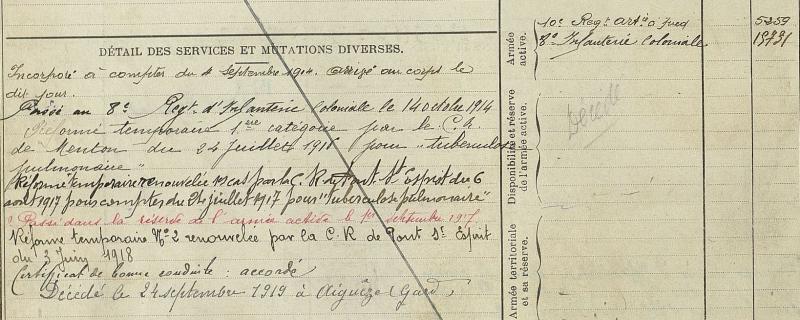 DÉTAIL DES SERVICES ET MUTATIONS DIVERSES.
Incorporé à compter du 4 Septembre 1914. arrivé au corps le
dit jour.
Passé au 8e Regt d'Infanterie Coloniale le 14 octobre 1914
Réformé temporaire 1ère catégorie par la C. R.
de Menton du 24 juillet 1916 pour "tuberculose
pulmonaire"
Réforme temporaire renouvelée par la C. R. de Pont St Esprit du 6
aout 1917 pour compter du 24 juillet 1917 pour "Tuberculose pulmonaire"
Passé dans la réserve de l'armée active le 1er septembre 1917
Réforme temporaire No 2 renouvelée par la C. R de Pont St Esprit
du 3 Juin 1918
Certificat de bonne conduite : accordé
Décédé le 24 septembre 1919 à Aiguèze (Gard)
Armée
active.
10e Regt Artie à pied 5259
8e Infanterie Coloniale
Disponibilité et réserve
de l'armée active.
Décédé
Armée territoriale
et sa réserve.